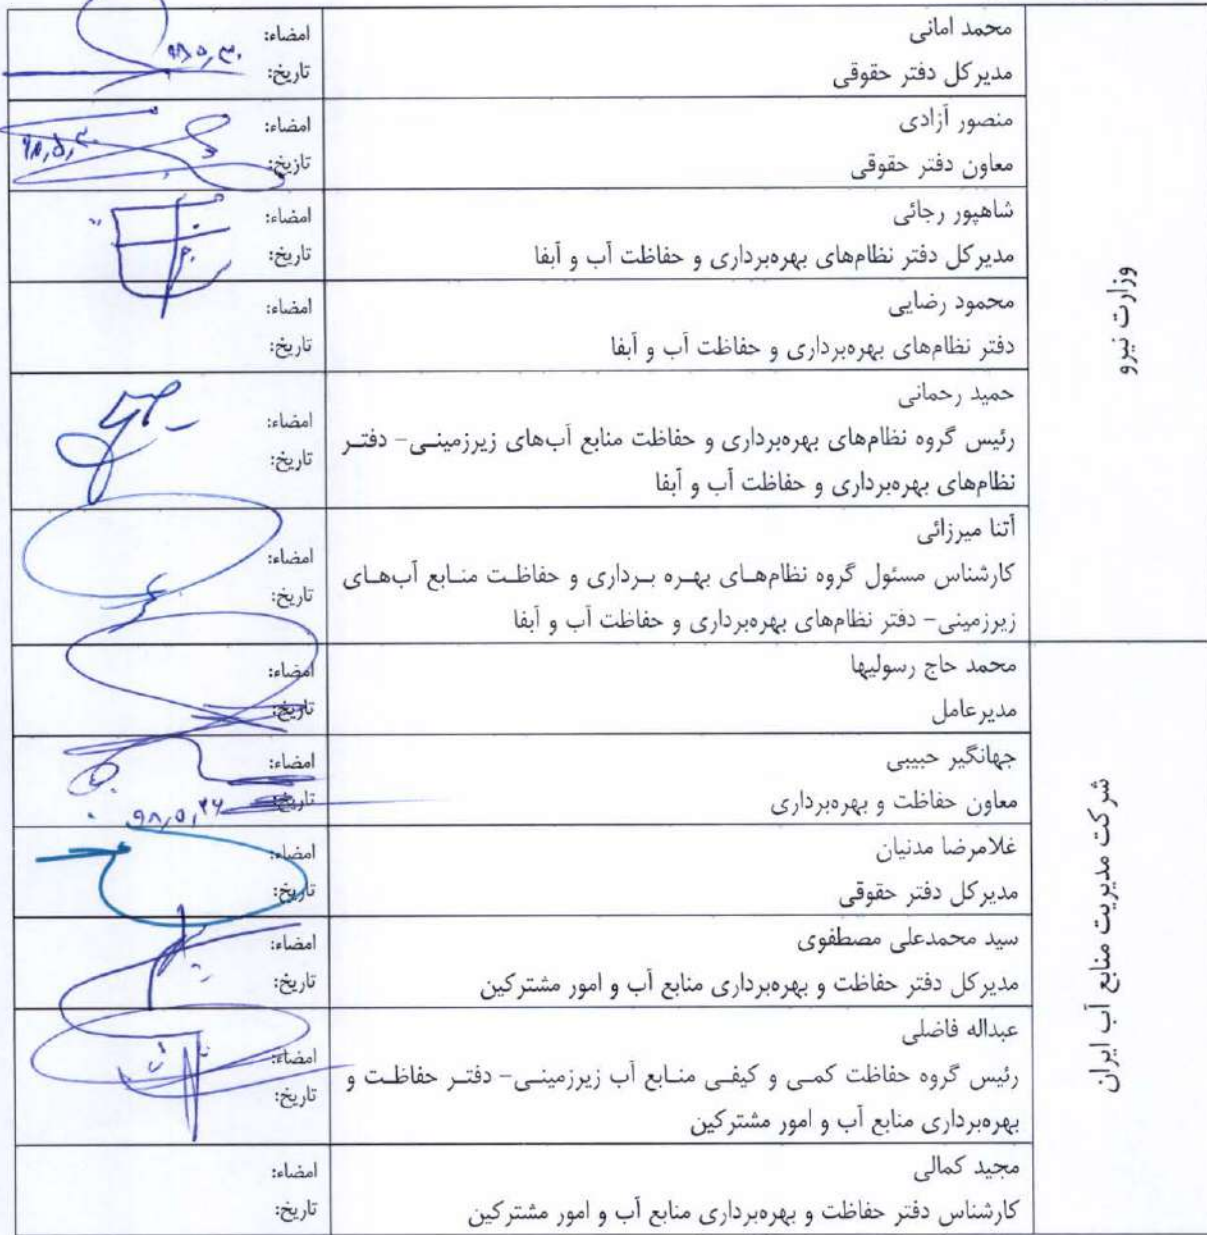 وزارت نیرو
محمد امانی
مدیرکل دفتر حقوقی
امضاء:
۹۸,۵,۳۰
تاریخ:
منصور آزادی
معاون دفتر حقوقی
امضاء:
۹۸,۵,۳۰
تاریخ:
شاهپور رجائی
مدیرکل دفتر نظام‌های بهره‌برداری و حفاظت آب و آبفا
امضاء:
تاریخ:
محمود رضایی
دفتر نظام‌های بهره‌برداری و حفاظت آب و آبفا
امضاء:
تاریخ:
حمید رحمانی
رئیس گروه نظام‌های بهره‌برداری و حفاظت منابع آب‌های زیرزمینـی- دفتـر
نظام‌های بهره‌برداری و حفاظت آب و آبفا
امضاء:
تاریخ:
آتنا میرزائی
کارشناس مسئول گروه نظام‌هـای بهـره بـرداری و حفاظـت منـابع آب‌هـای
زیرزمینی- دفتر نظام‌های بهره‌برداری و حفاظت آب و آبفا
امضاء:
تاریخ:
شرکت مدیریت منابع آب ایران
محمد حاج رسولیها
مدیرعامل
امضاء:
تاریخ:
جهانگیر حبیبی
معاون حفاظت و بهره‌برداری
امضاء:
تاریخ:
۹۸,۵,۲۶
غلامرضا مدنیان
مدیرکل دفتر حقوقی
امضاء:
تاریخ:
سید محمدعلی مصطفوی
مدیرکل دفتر حفاظت و بهره‌برداری منابع آب و امور مشترکین
امضاء:
تاریخ:
عبداله فاضلی
رئیس گروه حفاظت کمـی و کیفـی منـابع آب زیرزمینـی- دفتـر حفاظـت و
بهره‌برداری منابع آب و امور مشترکین
امضاء:
تاریخ:
مجید کمالی
کارشناس دفتر حفاظت و بهره‌برداری منابع آب و امور مشترکین
امضاء:
تاریخ: